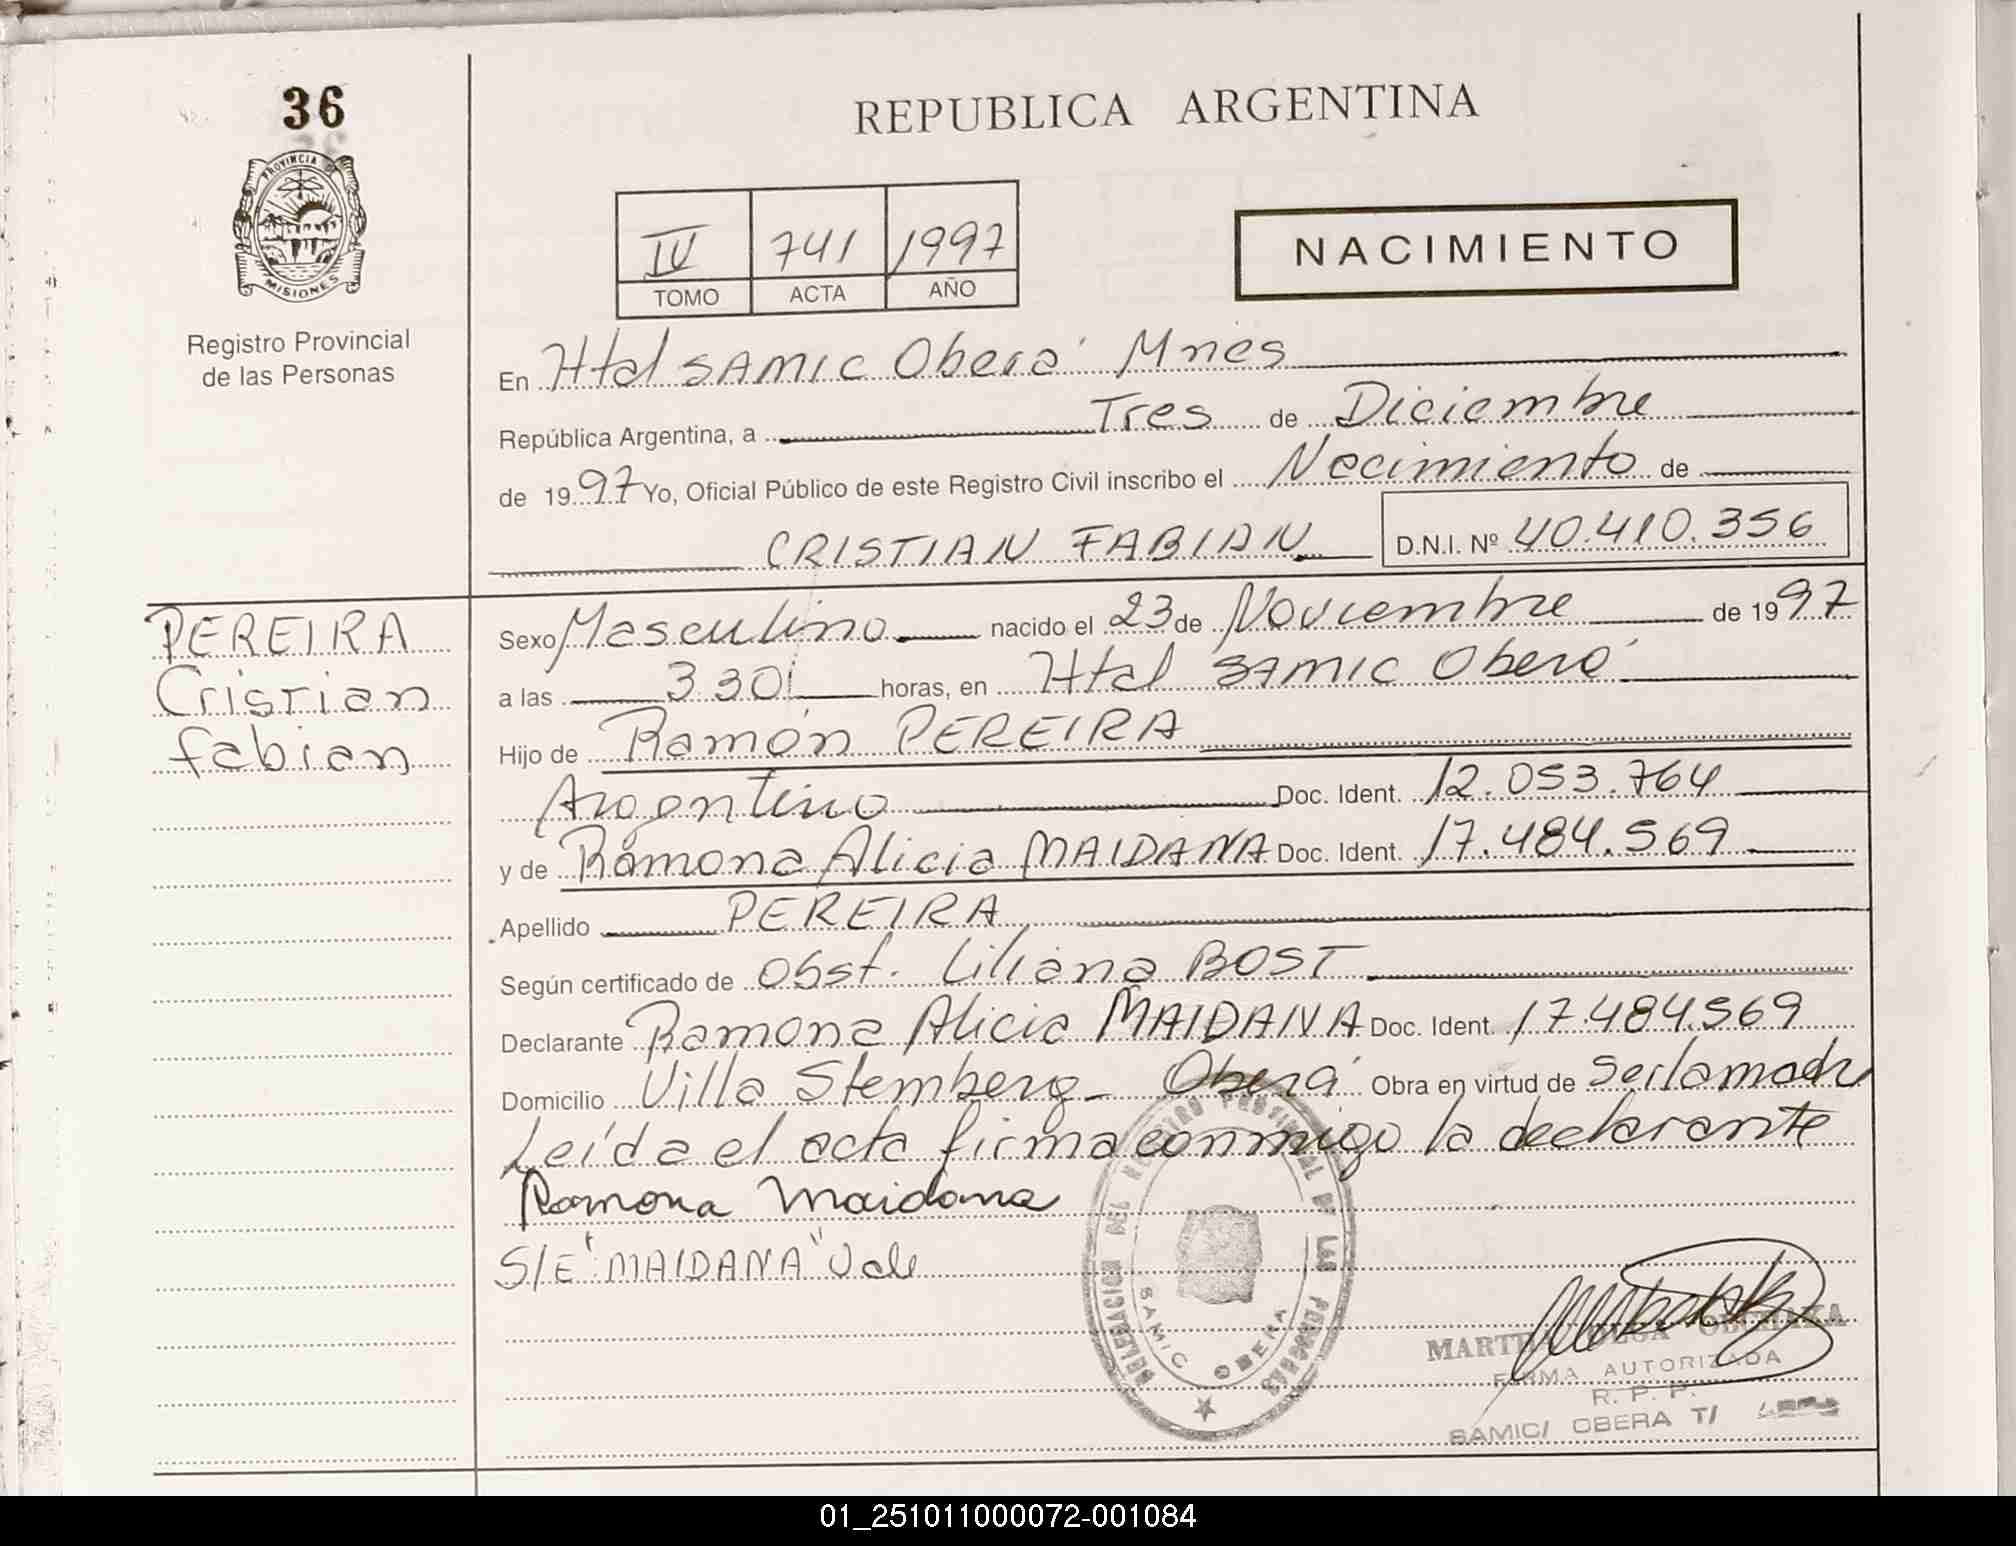 36
PROVINCIA DE
MISIONES
Registro Provincial
de las Personas
REPUBLICA ARGENTINA
IV 741 1997
TOMO ACTA AÑO
NACIMIENTO
En Htal SAMIC Oberá Mnes
República Argentina, a Tres de Diciembre
de 1997 Yo, Oficial Público de este Registro Civil inscribo el Nacimiento de
CRISTIAN FABIAN D.N.I. Nº 40.410.356
PEREIRA
Cristian
Fabian
Sexo Masculino nacido el 23 de Noviembre de 1997
a las 3 30 horas, en Htal SAMIC Oberá
Hijo de Ramón PEREIRA
Argentino Doc. Ident. 12.053.764
y de Ramona Alicia MAIDANA Doc. Ident. 17.484.569
Apellido PEREIRA
Según certificado de Obst. Liliana BOST
Declarante Ramona Alicia MAIDANA Doc. Ident. 17.484.569
Domicilio Villa Stemberg - Oberá Obra en virtud de Ser la madre
Leída el acta firma conmigo la declarante
Ramona Maidana
S/E "MAIDANA" Vale
DELEGACION DEL REGISTRO PROVINCIAL DE LAS PERSONAS
SAMIC OBERA
FIRMA AUTORIZADA
R. P. P.
SAMIC/ OBERA T/
01_251011000072-001084